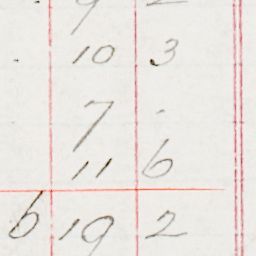 9 2
. 10 3
7 .
11 6
6 19 2